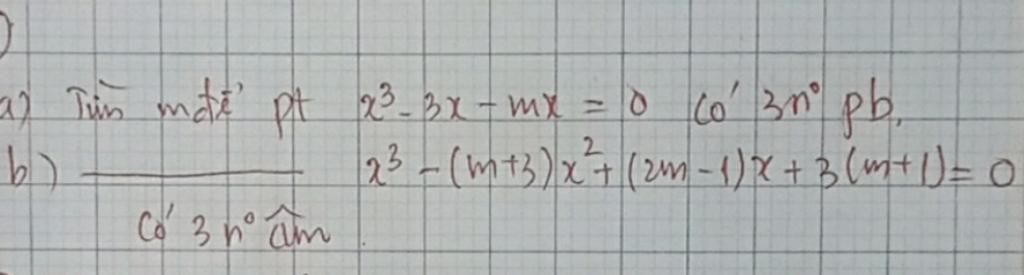 a) Tìm m để pt x³ - 3x - mx = 0 có 3 n° pb.
b) ——— x³ - (m+3)x² + (2m-1)x + 3(m+1) = 0
có 3 n° âm.